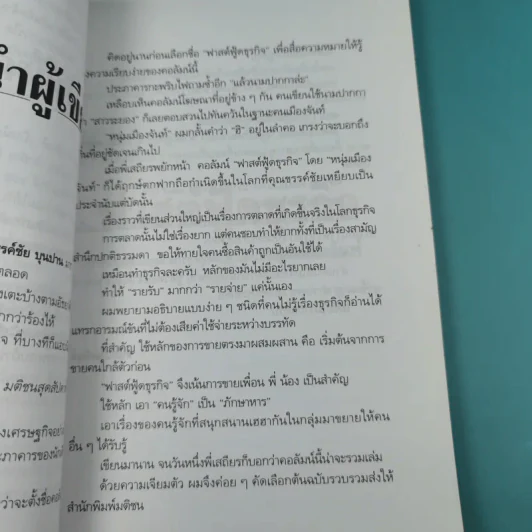 ำผู้เขี
รรค์ชัย บุนปาน
ตลอด
งเตะบ้างตาม
ากว่าร้องให้
จ ที่บางทีก็
มติชนสุดสัปดา
งเศรษฐกิจ
ะภาคารของ
ว่าจะตั้งชื่อคอ
คิดอยู่นานก่อนเลือกชื่อ "ฟาสต์ฟู้ดธุรกิจ" เพื่อสื่อความหมายให้รู้
ึงความเรียบง่ายของคอลัมน์นี้
ประภาคารกะพริบไฟถามซ้ำอีก "แล้วนามปากกาล่ะ"
เหลือบเห็นคอลัมน์โฆษณาที่อยู่ข้าง ๆ กัน คนเขียนใช้นามปากกา
า "สาวระยอง" ก็เลยตอบสวนไปทันควันในฐานะคนเมืองจันท์
"หนุ่มเมืองจันท์" ผมกลั้นคำว่า "ฮิ" อยู่ในลำคอ เกรงว่าจะบอกถึง
ิ่นที่อยู่ชัดเจนเกินไป
เมื่อพี่เสถียรพยักหน้า คอลัมน์ "ฟาสต์ฟู้ดธุรกิจ" โดย "หนุ่มเมือง
จันท์" ก็ได้ฤกษ์ตกฟากถือกำเนิดขึ้นในโลกที่คุณขรรค์ชัยเหยียบเป็น
ประจำนับแต่บัดนั้น
เรื่องราวที่เขียนส่วนใหญ่เป็นเรื่องการตลาดที่เกิดขึ้นจริงในโลกธุรกิจ
การตลาดนั้นไม่ใช่เรื่องยาก แต่คนชอบทำให้ยากทั้งที่เป็นเรื่องสามัญ
สำนึกปกติธรรมดา ขอให้ทายใจคนซื้อสินค้าถูกเป็นอันใช้ได้
เหมือนทำธุรกิจละครับ หลักของมันไม่มีอะไรยากเลย
ทำให้ "รายรับ" มากกว่า "รายจ่าย" แค่นั้นเอง
ผมพยายามอธิบายแบบง่าย ๆ ชนิดที่คนไม่รู้เรื่องธุรกิจก็อ่านได้
แทรกอารมณ์ขันที่ไม่ต้องเสียค่าใช้จ่ายระหว่างบรรทัด
ที่สำคัญ ใช้หลักของการขายตรงมาผสมผสาน คือ เริ่มต้นจากการ
ขายคนใกล้ตัวก่อน
"ฟาสต์ฟู้ดธุรกิจ" จึงเน้นการขายเพื่อน พี่ น้อง เป็นสำคัญ
ใช้หลัก เอา "คนรู้จัก" เป็น "ภักษาหาร"
เอาเรื่องของคนรู้จักที่สนุกสนานเฮฮากันในกลุ่มมาขยายให้คน
อื่น ๆ ได้รับรู้
เขียนมานาน จนวันหนึ่งพี่เสถียรก็บอกว่าคอลัมน์นี้น่าจะรวมเล่ม
ด้วยความเจียมตัว ผมจึงค่อย ๆ คัดเลือกต้นฉบับรวบรวมส่งให้
สำนักพิมพ์มติชน